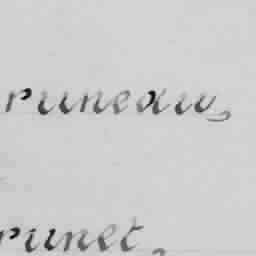 runeau,
runet,